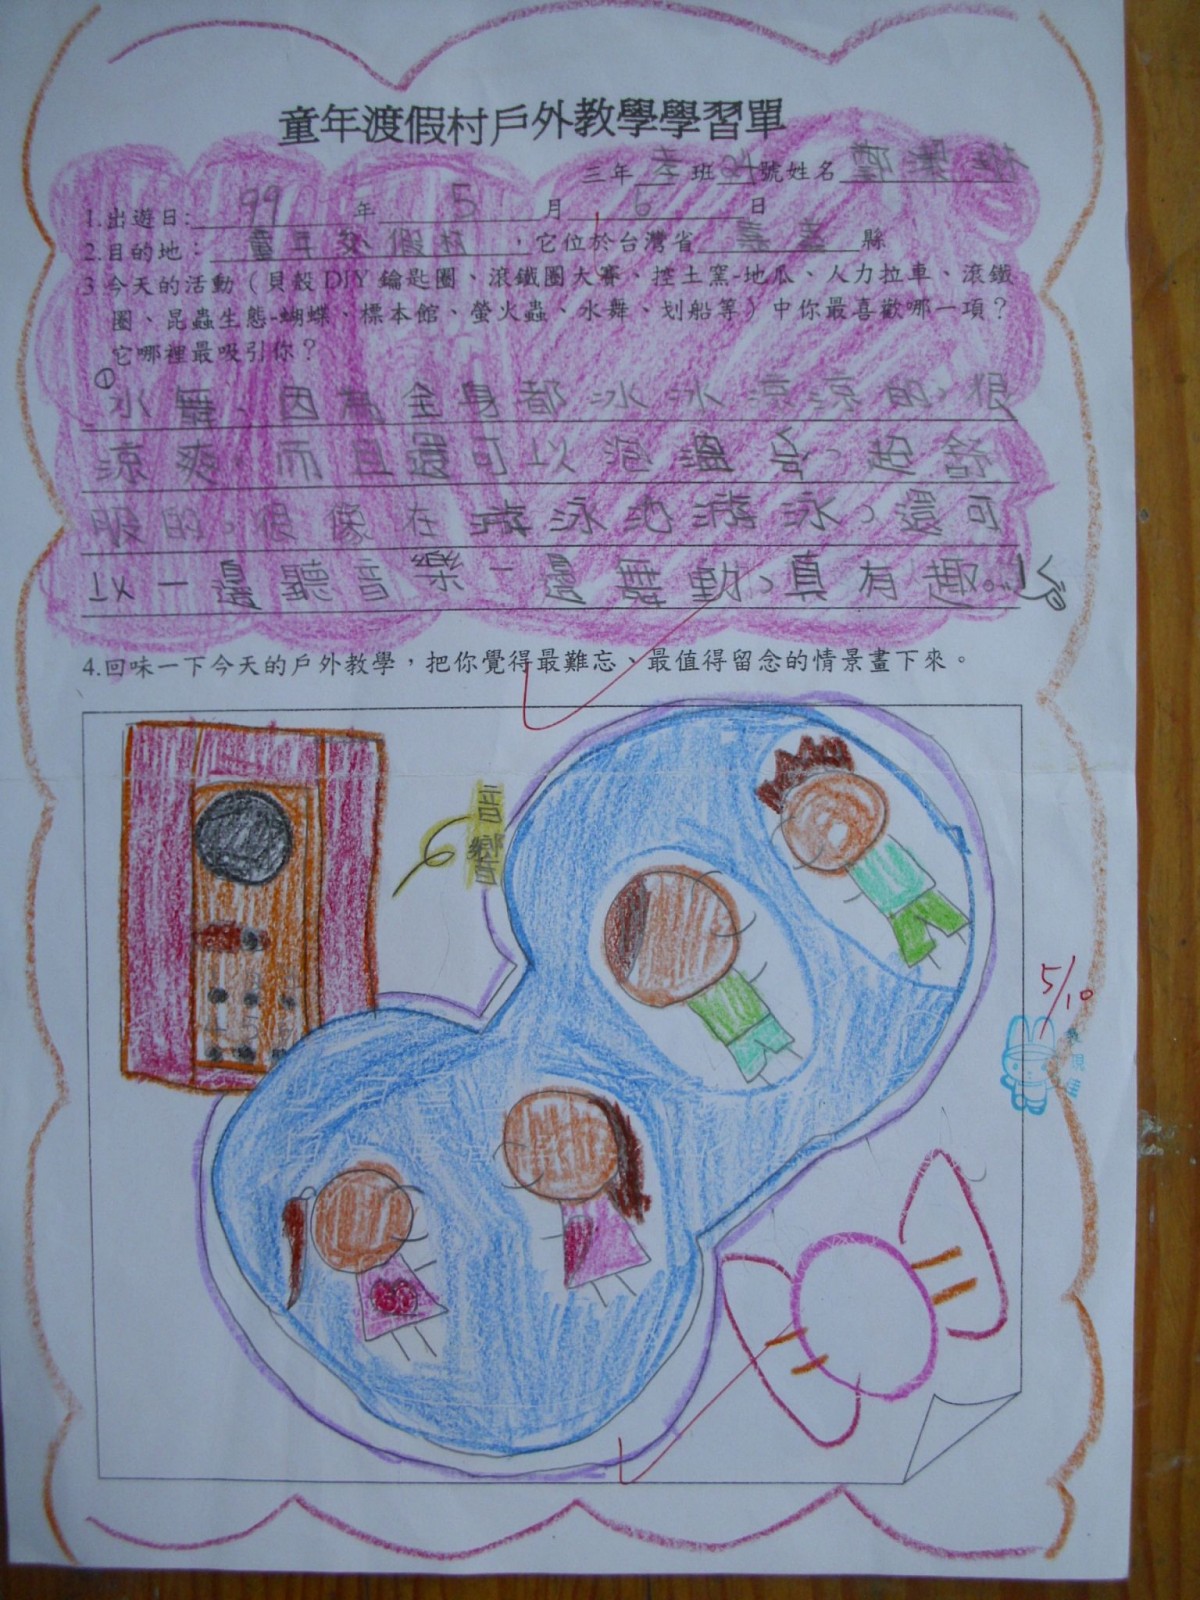 童年渡假村戶外教學學習單
三年孝班24號姓名
1.出遊日:99年5月6日
2.目的地:童年渡假村,它位於台灣省嘉義縣
3.今天的活動(貝殼DIY鑰匙圈、滾鐵圈大賽、控土窯-地瓜、人力拉車、滾鐵
圈、昆蟲生態-蝴蝶、標本館、螢火蟲、水舞、划船等)中你最喜歡哪一項?
它哪裡最吸引你?
水舞、因為全身都冰冰涼涼的,很
涼爽,而且還可以泡溫
服的,很像在游泳池游泳,還可
以一邊聽音樂一邊舞動,真有趣。
4.回味一下今天的戶外教學,把你覺得最難忘、最值得留念的情景畫下來。
音響
5/10